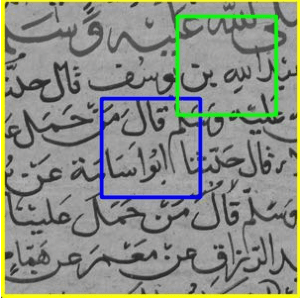 الله عليه وسلم
عبد الله بن يوسف قال حدثنا
عليه وسلم قال من حمل علينا
قال حدثنا ابو اسامة عن
وسلم قال من حمل علينا
عبد الرزاق عن معمر عن همام